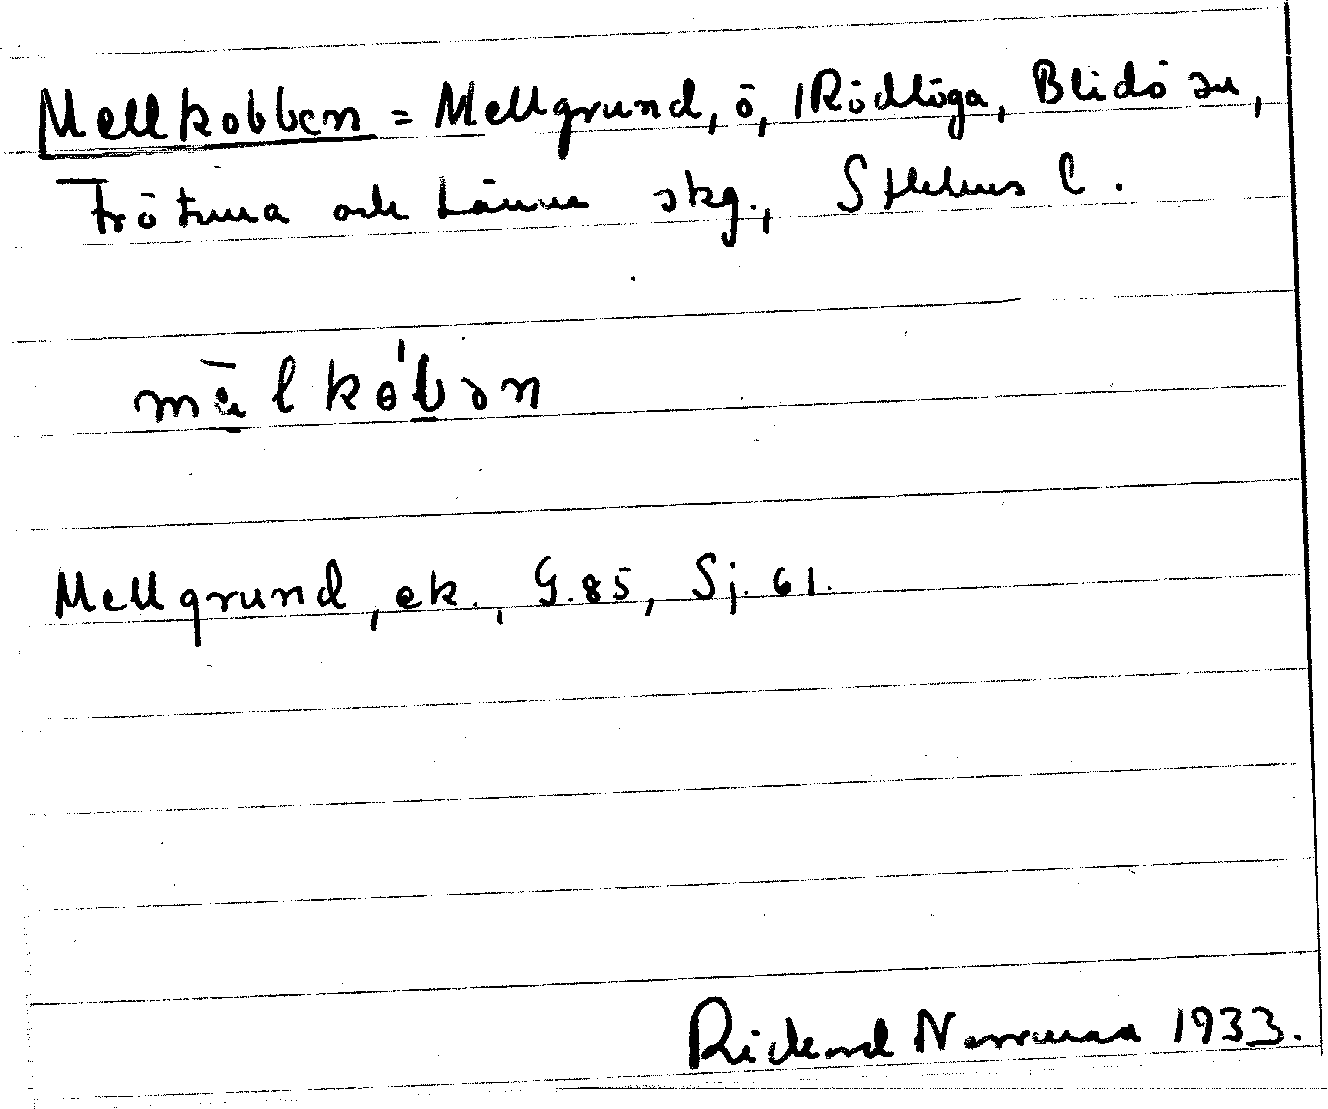 Mellkobben = Mellgrund, ö, Rödlöga, Blidö sn,
Frötuna och Länna skg., Sthlms l.
mälkob̀ən
Mellgrund, ek., G. 85, Sj. 61.
Rickard Norrman 1933.